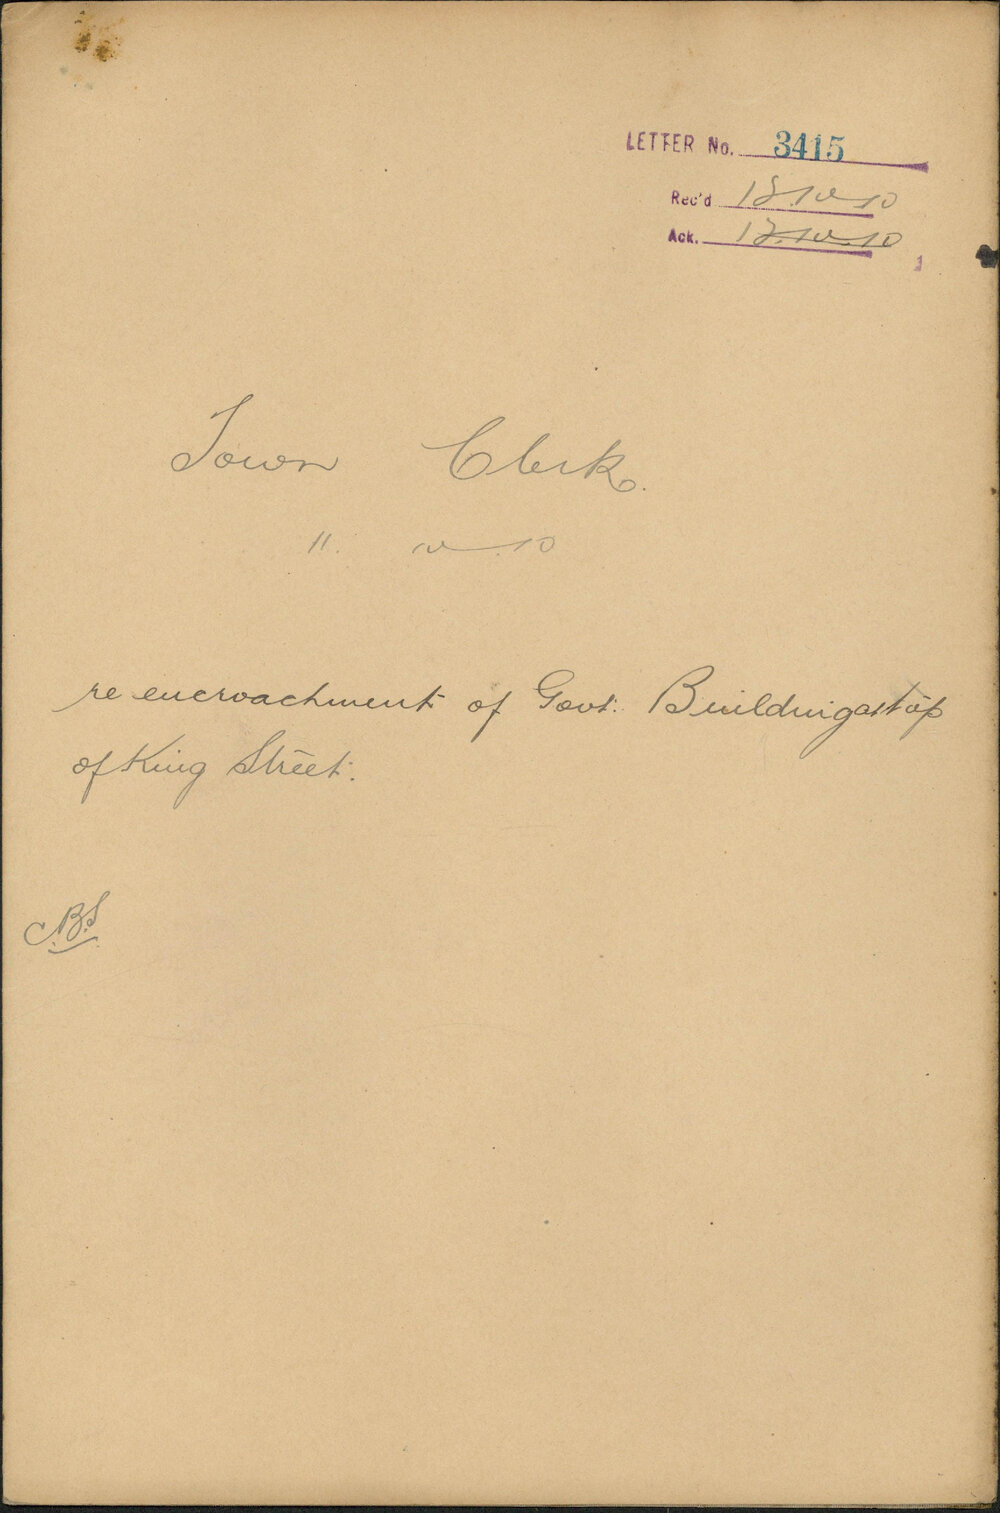 LETTER No. 3415
Rec'd 13.10.10
Ack. 13.10.10
Town Clerk.
11. 10.10
re encroachment of Govt. Building at top
of King Street.